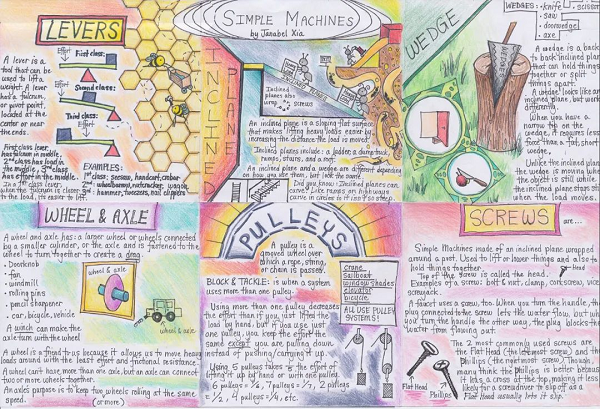 LEVERS
A lever is a
tool that can be
used to lift a
weight. A lever
has a fulcrum,
or pivot point,
located at the
center or near
the ends.
Effort
First class:
Effort
Second class:
Third class:
Effort
First class lever
has fulcrum in middle,
2nd class has load in
the middle, 3rd class
has effort in the middle.
In a 1st class lever,
when the fulcrum is closer
to the load, its easier to lift.
EXAMPLES:
1st class: Seesaw, handcart, crobar
2nd: wheelbarrow, nutcracker, wagon
hammer, tweezers, nail clippers
SIMPLE MACHINES
by Janabel Xia
INCLINED
PLANE
Inclined
planes also
wrap
screws
An inclined plane is a sloping flat surface
that makes lifting heavy loads easier by
increasing the distance the load is moved!
Inclined planes include: a ladder, a dump truck,
ramps, stairs, and a roof.
An inclined plane and a wedge are different depending
on how you use them, but look the same.
Did you know: Inclined planes can
curve? Like ramps on high ways
curve in circles so it isn't so steep.
WEDGE
WEDGES:
• knife
• saw
• doorwedge
• axe
• scissors
A wedge is a back
to back inclined plane
that can hold things
together or split
things apart.
A wedge looks like an
inclined plane, but work
different.
When you have a
narrow tip on the
wedge, it requires less
force than a fat, short
wedge.
Unlike the inclined plane
the wedge is moving when
the object is still while
the inclined plane stays still
when the load moves.
WHEEL & AXLE
A wheel and axle has: a larger wheel or wheels connected
by a smaller cylinder, or the axle and is fastened to the
wheel to turn together to create a drag
• Doorknob
• fan
• windmill
• rolling pins
• pencil sharpener
• car, bicycle, vehicle
wheel & axle
A winch can make the
axle turn with the wheel
wheel & axle
A wheel is a friend to us because it allows us to move heavy
loads around with the least effort and frictional resistance.
A wheel can't have more than one axle, but an axle can connect
two or more wheels together.
An axles purpose is to keep two wheels rolling at the same
speed. (or more)
PULLEYS
A pulley is a
grooved wheel over
which a rope, string,
or chain is passed.
BLOCK & TACKLE: is when a system
uses more than one pulley.
crane
Sailboat
window shades
elevator
bicycle
ALL USE PULLEY
SYSTEMS!
Using more than one pulley decreases
the effort than if you just lifted the
load by hand. but if you use just
one pulley, you keep the effort the
same except you are pulling down
instead of pushing/carrying it up.
Using 5 pulleys takes 1/5 the effort of
lifting it up by hand or with one pulled.
6 pulleys = 1/6, 7 pulleys = 1/7, 2 pulleys
= 1/2, 4 pulleys = 1/4, etc.
SCREWS
are...
Simple Machines made of an inclined plane wrapped
around a post. Used to lift or lower things and also to
hold things together.
Top of the screw is called the head.
Head
Examples of a screw: bolt & nut, clamp, corkscrew, vice
screwjack.
A faucet uses a screw, too. When you turn the handle, the
plug connected to the screw lets the water flow, but when
you turn the handle the other way, the plug blocks the
water from flowing out.
The 2 most commonly used screws are
the Flat Head (the leftmost screw) and the
Phillips (the rightmost screw). Though,
many think the Phillips is better because
it has a cross at the top, making it less
likely for a screwdriver to slip off as a
Flat Head usually lets it slip.
Flat Head
Phillips